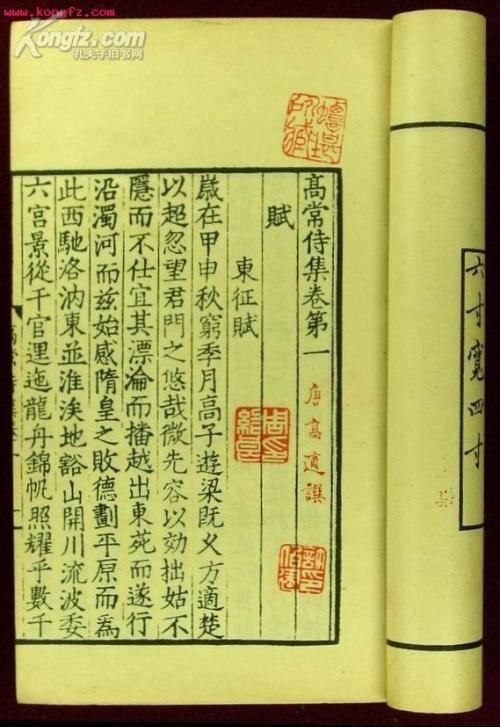 www.kongfz.com
Kongfz.com
孔夫子旧书网
六寸寬四寸
髙常侍集卷第一
唐高適譔
賦
東征賦
嵗在甲申秋窮季月高子遊梁既乆方適楚
以超忽望君門之悠哉微先容以効拙姑不
隱而不仕宜其漂淪而播越出東苑而遂行
沿濁河而兹始感隋皇之敗德劃平原而爲
此西馳洛汭東並淮涘地豁山開川流波委
六宫景從千官邐迤龍舟錦帆照耀乎數千